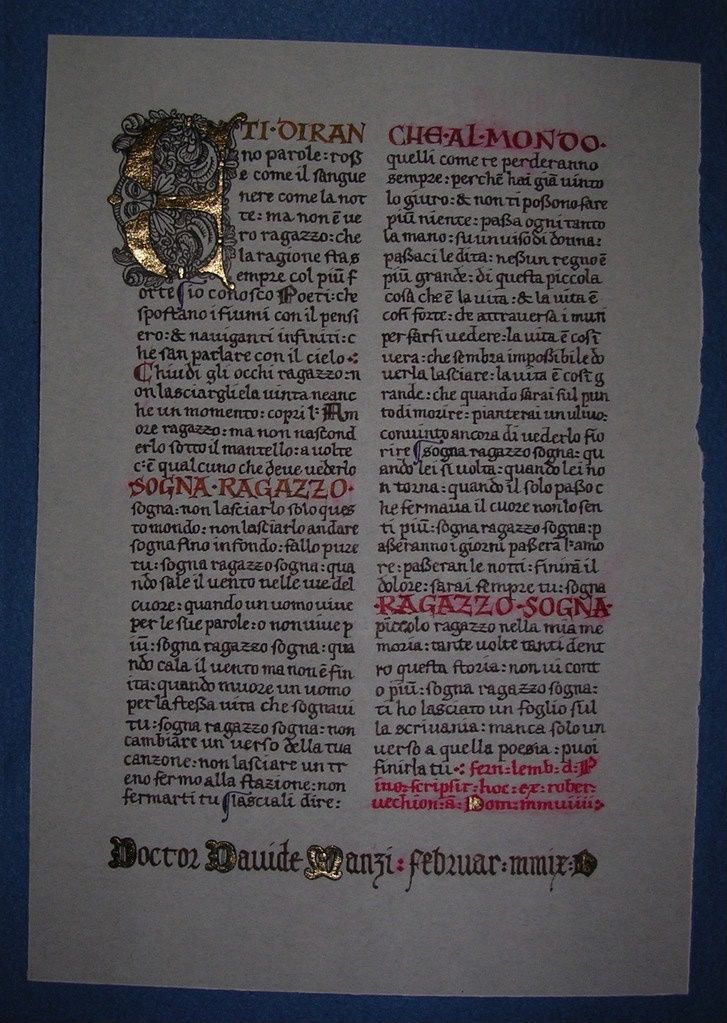 ETI·DIRAN
no parole: roſſ
e come il ſangue
nere come la not
te: ma non ē ue
ro ragazzo: che
la ragione ſta s
empre col piū f
orte ſio conosco Poeti: che
spoſtano i fiumi con il pensi
ero: & nauiganti infiniti: c
he san parlare con il cielo
Chiudi gli occhi ragazzo: n
on laſciargliela uinta neanc
he un momento: copri l: Am
ore ragazzo: ma non naſcond
erlo ſotto il mantello: a uolte
c:ē qualcuno che deue uederlo
SOGNA·RAGAZZO·
sogna: non laſciarlo ſolo ques
to mondo: non laſciarlo andare
sogna fino in fondo: fallo pure
tu: sogna ragazzo sogna: qua
ndo sale il uento nelle uie del
cuore: quando un uomo uiue
per le ſue parole: o non uiue p
iū: sogna ragazzo sogna: qua
ndo cala il uento ma non ē fin
ita: quando muore un uomo
per la ſteſſa uita che sognaui
tu: sogna ragazzo sogna: non
cambiare un uerso della tua
canzone: non laſciare un tr
eno fermo alla ſtazione: non
fermarti tu laſciali dire:
CHE·AL·MONDO·
quelli come te perderanno
sempre: perchē hai giā uinto
lo giuro: & non ti poſſono fare
piū niente: paſſa ogni tanto
la mano: ſu un uiſo di donna:
paſſaci le dita: neſſun regno ē
piū grande: di queſta piccola
coſa che ē la uita: & la uita ē
coſi forte: che attrauerſa i muri
per farſi uedere: la uita ē coſi
uera: che ſembra impoſſibile do
uerla laſciare: la uita ē coſi g
rande: che quando ſarai ſul pun
to di morire: pianterai un uliuo:
conuinto ancora di uederlo fio
rire sogna ragazzo sogna: qu
ando lei ſi uolta: quando lei no
n torna: quando il solo paſſo c
he fermaua il cuore non lo ſen
ti piū: sogna ragazzo sogna: p
aſſeranno i giorni paſſerā l: amo
re: paſſeran le notti: finirā il
dolore: sarai ſempre tu: sogna
·RAGAZZO·SOGNA·
piccolo ragazzo nella mia me
moria: tante uolte tanti dent
ro queſta ſtoria: non ui cont
o piū: sogna ragazzo sogna:
ti ho laſciato un foglio ſul
la scriuania: manca ſolo un
uerso a quella poesia: puoi
finirla tu fern: lemb: d: P
ino: ſcripſit: hoc: ex: rober:
uechion: ā: Dom: mmuiiii:
Doctor Dauide Manzi: februar: mmix: